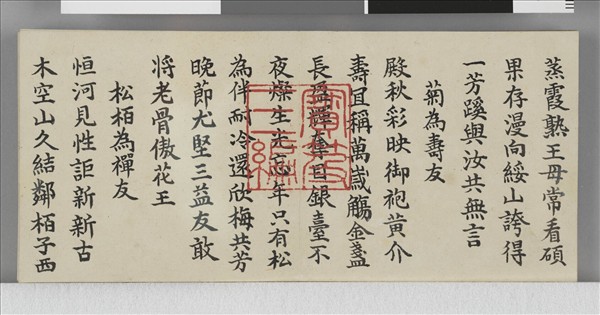 蒸霞熟王母常看碩
果存漫向綏山誇得
一芳蹊與汝共無言
菊為壽友
殿秋彩映御袍黃介
壽宜稱萬歲觴金盞
長盈輝奪目銀臺不
夜燦生光忘年只有松
為伴耐冷還欣梅共芳
晚節尤堅三益友敢
将老骨傲花王
松栢為禪友
恒河見性詎新新古
木空山久結鄰栢子西
寶笈
三編